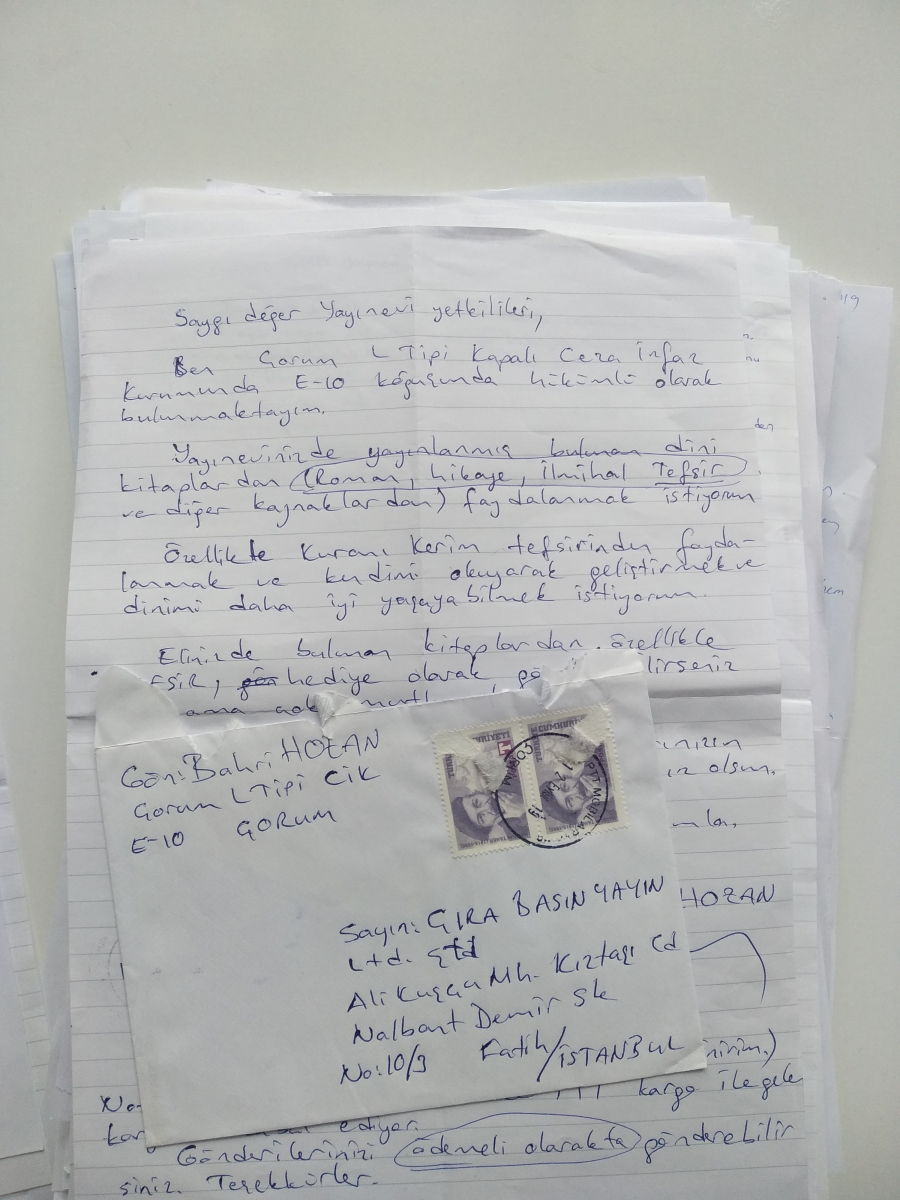 Saygı değer Yayınevi yetkilileri,
Ben Çorum L Tipi Kapalı Ceza İnfaz
Kurumunda E-10 koğuşunda hükümlü olarak
bulunmaktayım.
Yayınevinizde yayınlanmış bulunan dini
kitaplardan (Roman, hikaye, ilmihal Tefsir
ve diğer kaynaklardan) faydalanmak istiyorum
Özellikle Kuranı Kerim tefsirinden fayda-
lanmak ve kendimi okuyarak geliştirmek ve
dinimi daha iyi yaşayabilmek istiyorum.
Elinizde bulunan kitaplardan özellikle
hediye olarak
Gön: Bahri HOZAN
Çorum L Tipi CİK
E-10 ÇORUM
Sayın: ÇIRA BASIN YAYIN
Ltd. Ştd
Ali Kuşçu Mh. Kıztaşı Cd
Nalbant Demir Sk
No: 10/3 Fatih/İSTANBUL
olsun.
HOZAN
kargo ile gele
ediyor.
Gönderilerinizi ödemeli olarakta gönderebilir
siniz. Teşekkürler.